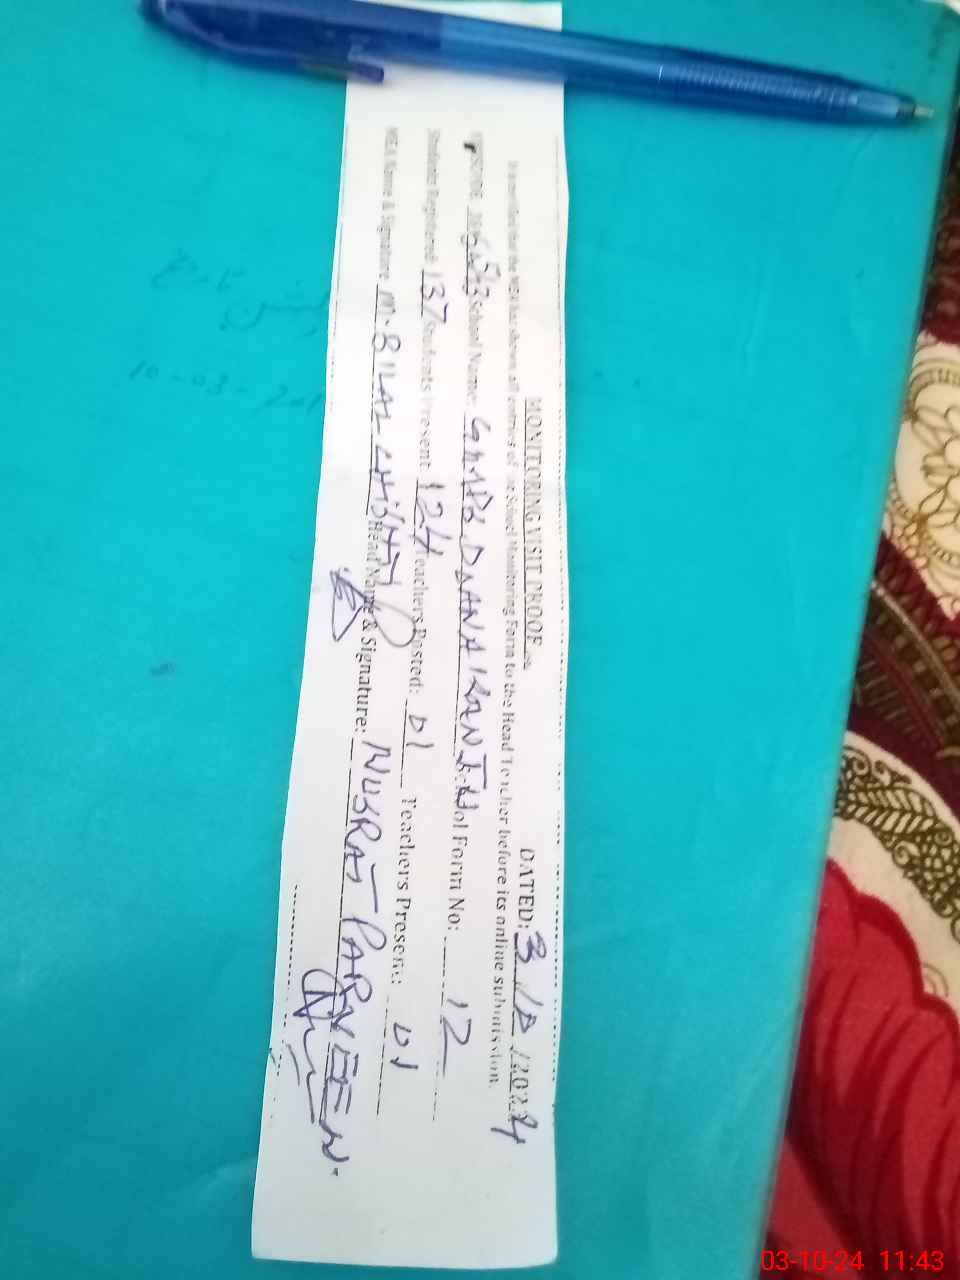 MONITORING VISIT PROOF DATED: 3/10/2024
It is verified that the MEA has shown all entries of the School Monitoring Form to the Head Teacher before its online submission.
School Name: School Form No: 12
Students Registered: 137 Students Present: 124 Teachers Posted: 01 Teachers Present: 01
MEA Name & Signature: M. BILAL CHISHTI Head Name & Signature: NUSRAT PARVEEN.
03-10-24 11:43